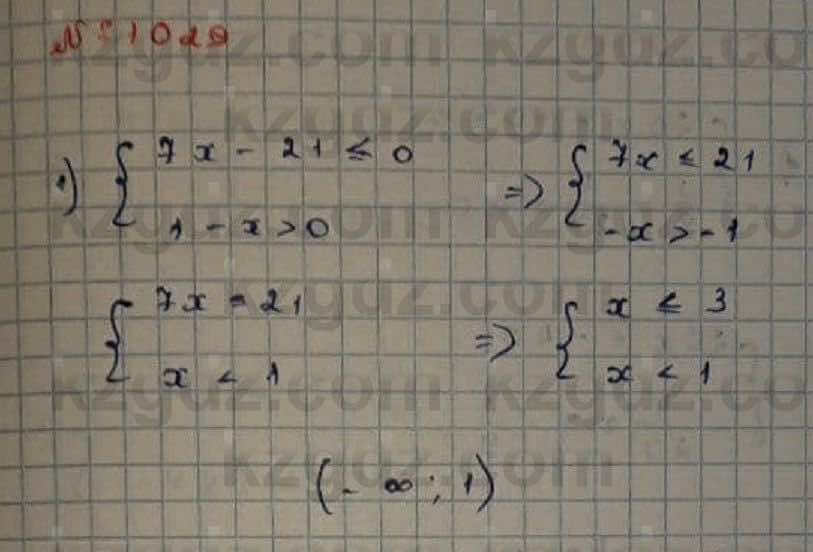 № 1029
1) { 7x - 21 ≤ 0 => { 7x ≤ 21
1 - x > 0 -x > -1
{ 7x = 21 => { x ≤ 3
x < 1 x < 1
(-∞; 1)
kzgdz.com